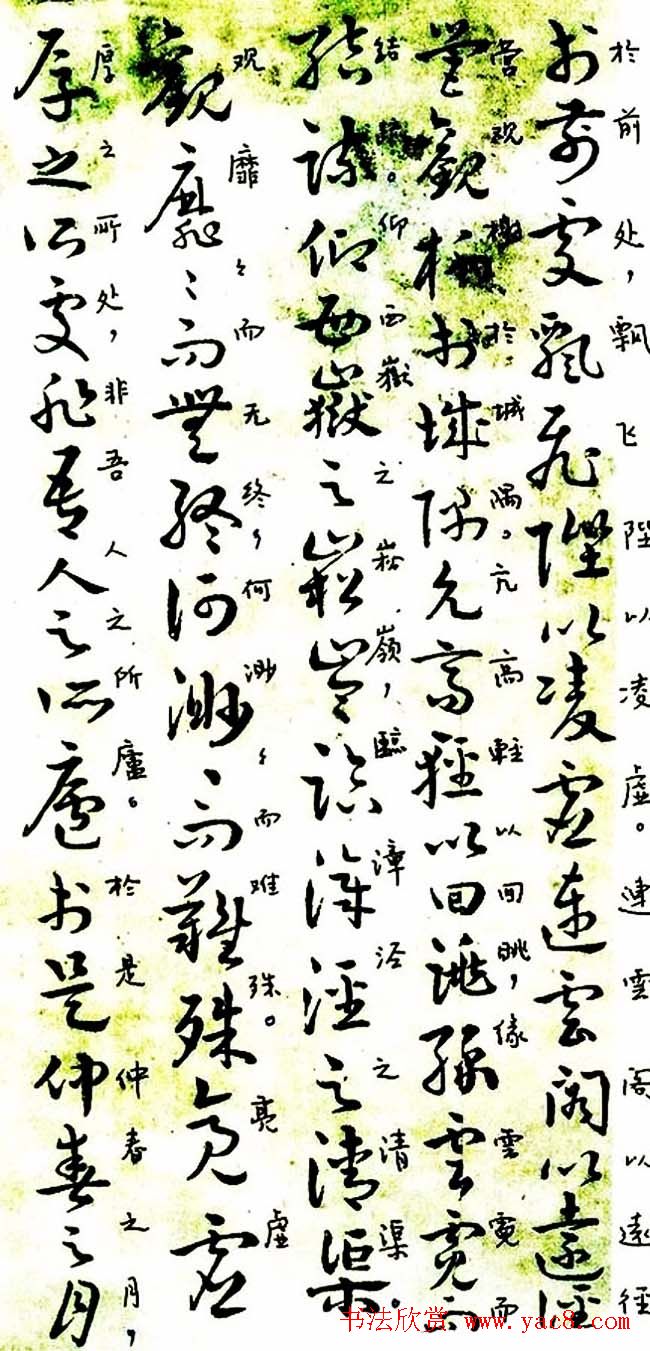 於前处，飘飞陛以凌虚。連雲阁以遠径
於前處飄飛陛以凌虛連雲閣以遠徑
营观榭於城隅。亢高軽以回眺，缘雲霓而
營觀榭於城隅亢高輕以回眺緣雲霓而
结疏。仰西嶽之崧嶺，臨漳泾之清渠。
結疏仰西嶽之崧岺臨漳涇之清渠
观靡々而无终，何渺々而难殊。亮虚
觀靡々而無終何渺々而難殊亮虛
厚之所处，非吾人之所廬。於是仲春之月，
厚之所處非吾人之所廬於是仲春之月
书法欣赏 www.yac8.com